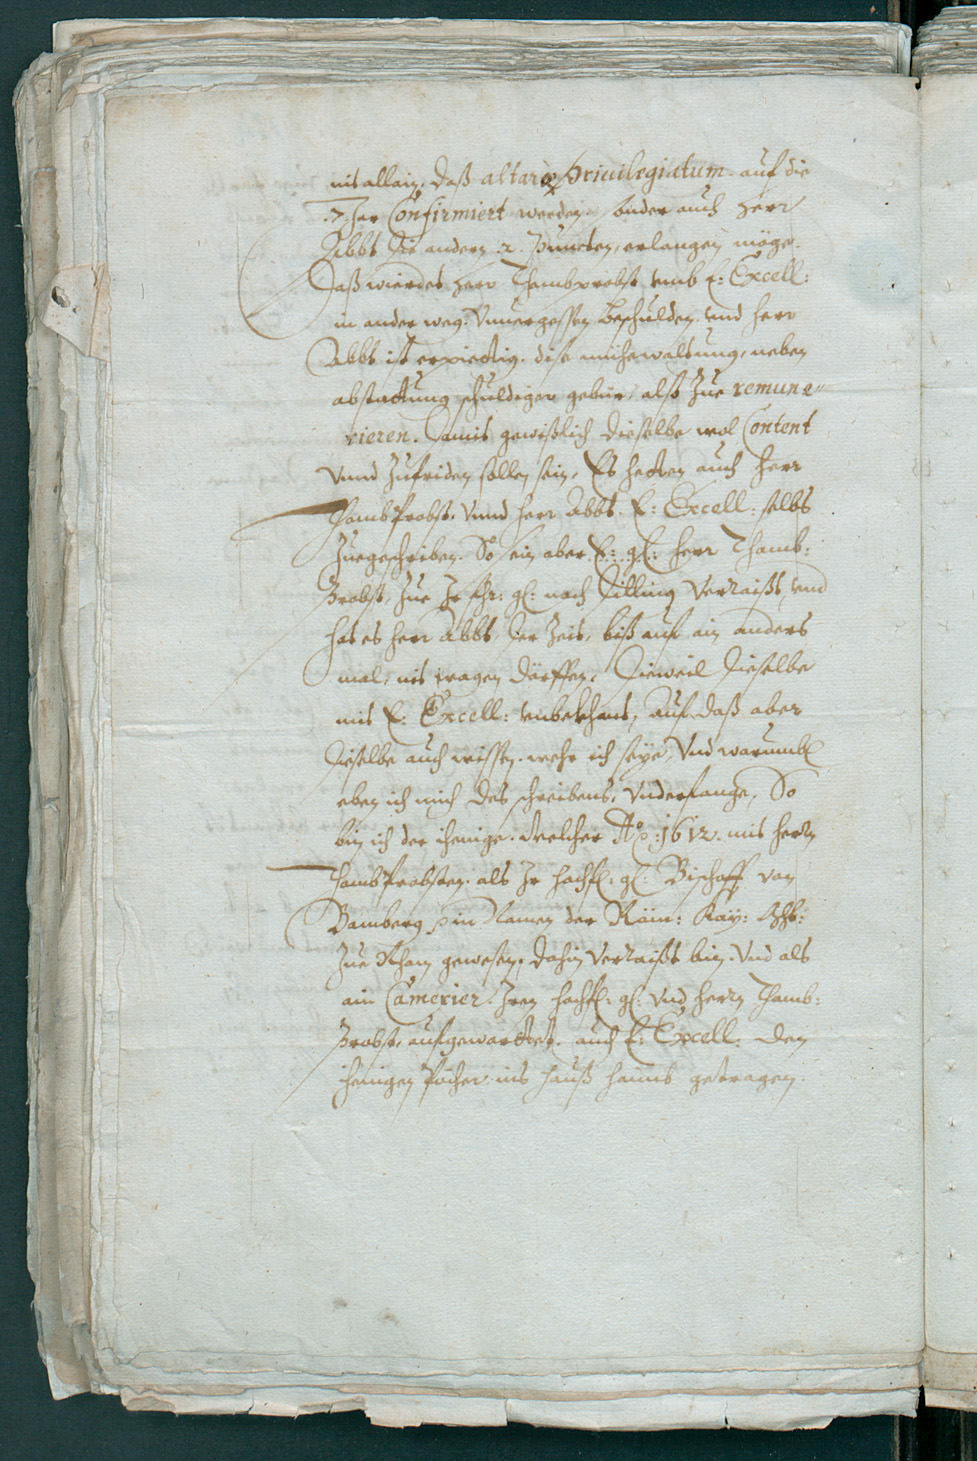 nit allain, daß altare Priuilegiatum auf die
7. Jar Confirmiert werden. sonder auch Herr
Abbt die andern .2. Puncten, erlangen möge.
Daß wierdet Herr Thombprobst vmb E: Excell:
in ander weg. Vnuergessen beschulden. vnd Herr
Abbt ist erpiettig. dise müehewaltung, neben
abstattung schuldiger gebür, alß zue remune=
rieren. Damit gewißlich dieselbe wol Content
vnnd zufriden sollen sein, Es hetten auch Herr
ThombProbst. vnnd Herr Abbt. E: Excell: selbs
zuegeschriben. So sein aber E: gl: Herr Thomb:
Probst, zue Jr fhr: gl: nach Dilling verraißt, vnd
hat es Herr Abbt, der Zeit, biß auf ain anders
mal, nit wagen dörffen. Dieweil dieselbe
mit E: Excell: vnbekhant, Auf daß aber
dieselbe auch wissen. wehr ich seye, Vnd warumb
eben ich mich des schreibens, vnderfange, So
bin ich der ihenige. welcher Ao. 1612. mit Herrn
ThombProbsten. als Jr hochfl: gl: Bischoff von
Bamberg, in Namen der Röm: Kay: Mt:
zue Rhom gewesen, dahin verraißt bin. Vnd als
ain Camerier. Jren hochfl: gl: Vnd Herrn Thomb:
Probst, aufgewarttet. auch E: Excell: den
ihenigen Pecher ins hauß haimb getragen.